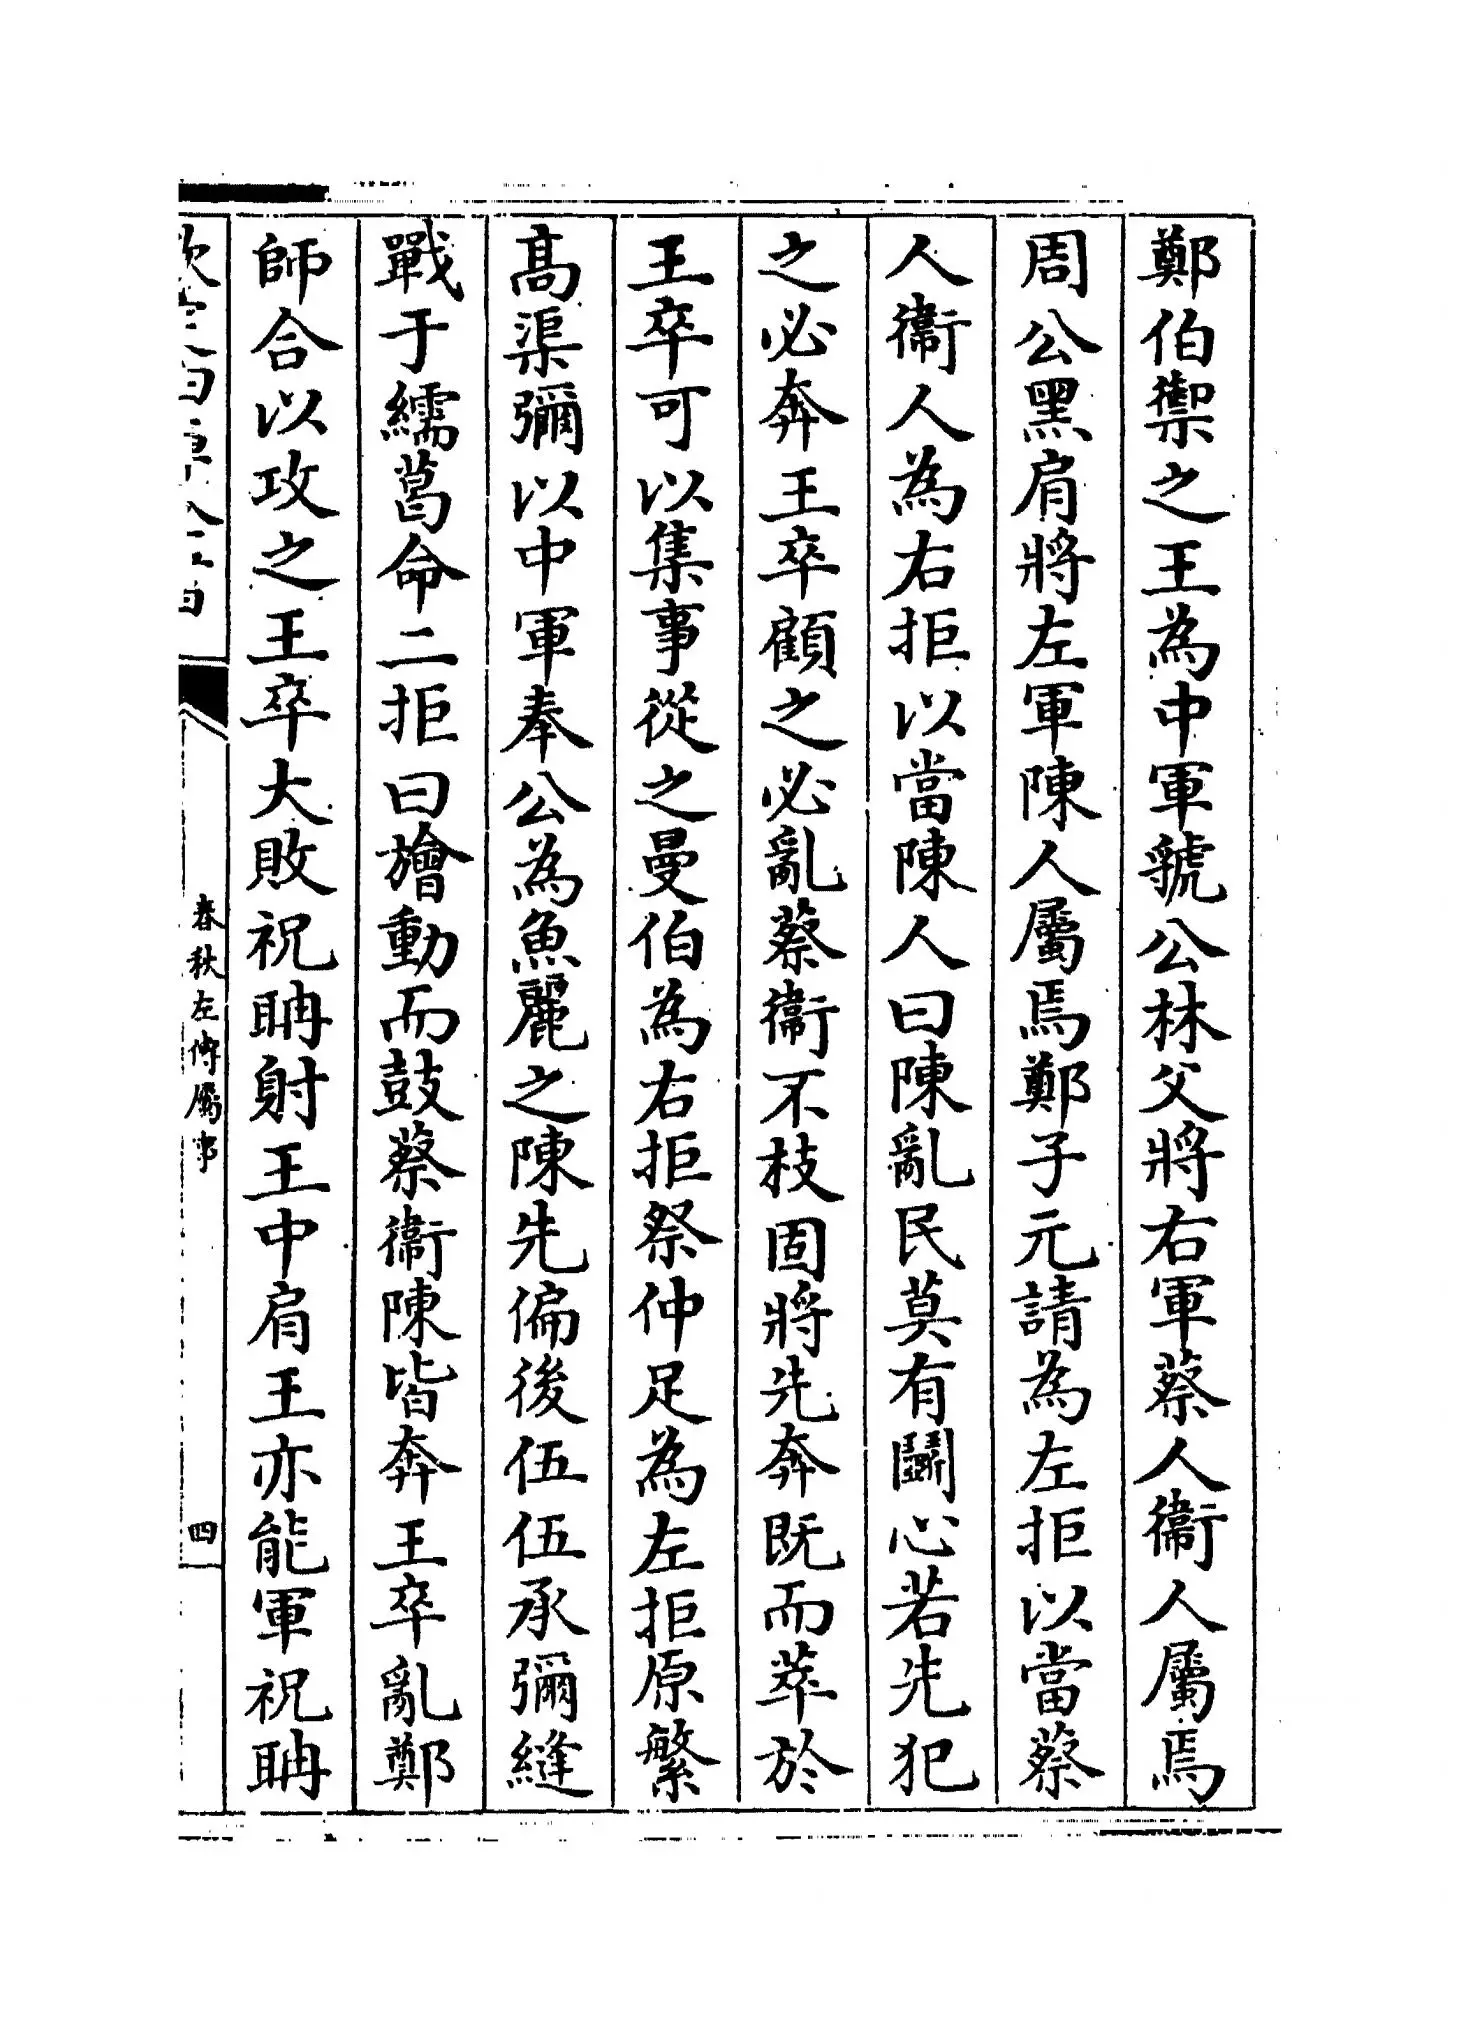 鄭伯禦之王為中軍虢公林父將右軍蔡人衞人屬焉
周公黑肩將左軍陳人屬焉鄭子元請為左拒以當蔡
人衞人為右拒以當陳人曰陳亂民莫有鬬心若先犯
之必奔王卒顧之必亂蔡衞不枝固將先奔既而萃於
王卒可以集事從之曼伯為右拒祭仲足為左拒原繁
髙渠彌以中軍奉公為魚麗之陳先偏後伍伍承彌縫
戰于繻葛命二拒曰旝動而鼓蔡衞陳皆奔王卒亂鄭
師合以攻之王卒大敗祝聃射王中肩王亦能軍祝聃
春秋左傳屬事
四